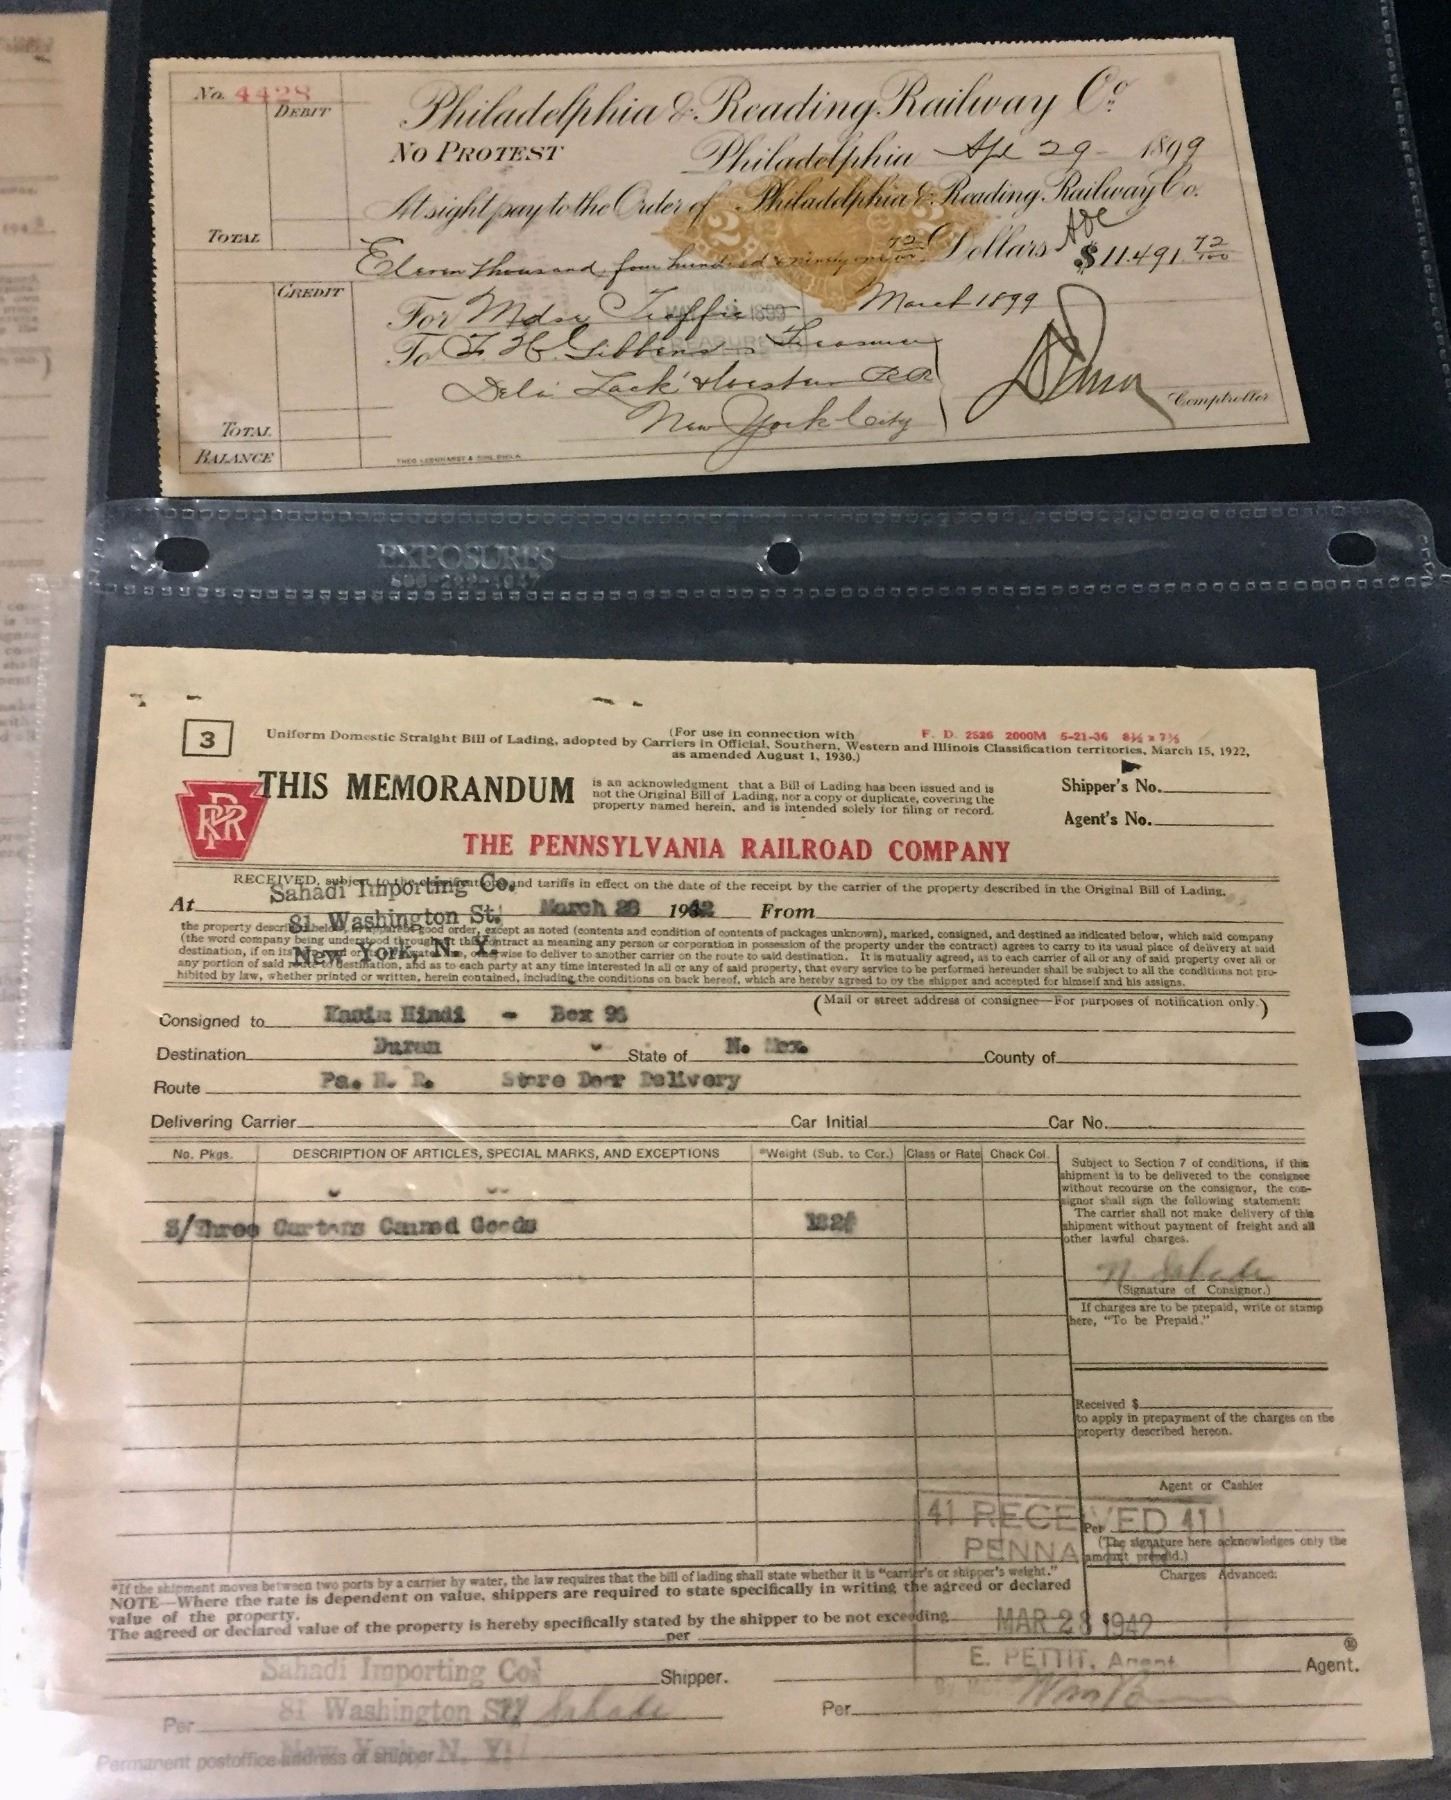 No. 4428
DEBIT
TOTAL
CREDIT
TOTAL
BALANCE
Philadelphia & Reading Railway Co.
NO PROTEST
Philadelphia Apl 29 1899
At sight pay to the Order of Philadelphia & Reading Railway Co.
2 2
Eleven thousand four hundred & ninety one 72/100 Dollars $11.491 72/100
For Mdse Traffic March 1899
1899
TREASURER
To F. H. Gibbens Treasurer
Dela Lack' & Western RR
New York City
Comptroller
EXPOSURES
3
Uniform Domestic Straight Bill of Lading, adopted by Carriers in Official, Southern, Western and Illinois Classification territories, March 15, 1922,
(For use in connection with
as amended August 1, 1930.)
F. D. 2526 2000M 5-21-36 8½ x 7½
PRR
THIS MEMORANDUM
is an acknowledgment that a Bill of Lading has been issued and is
not the Original Bill of Lading, nor a copy or duplicate, covering the
property named herein, and is intended solely for filing or record.
Shipper's No.
Agent's No.
THE PENNSYLVANIA RAILROAD COMPANY
RECEIVED, subject to the classifications and tariffs in effect on the date of the receipt by the carrier of the property described in the Original Bill of Lading,
Sahadi Importing Co.
At March 28 1942 From
81 Washington St.
New York, N. Y.
the property described below, in apparent good order, except as noted (contents and condition of contents of packages unknown), marked, consigned, and destined as indicated below, which said company
(the word company being understood throughout this contract as meaning any person or corporation in possession of the property under the contract) agrees to carry to its usual place of delivery at said
destination, if on its otherwise to deliver to another carrier on the route to said destination. It is mutually agreed, as to each carrier of all or any of said property over all or
any portion of said route to destination, and as to each party at any time interested in all or any of said property, that every service to be performed hereunder shall be subject to all the conditions not pro-
hibited by law, whether printed or written, herein contained, including the conditions on back hereof, which are hereby agreed to by the shipper and accepted for himself and his assigns.
(Mail or street address of consignee—For purposes of notification only.)
Consigned to Kasim Hindi - Box 96
Destination Duran State of N. Mex. County of
Route Pa. R. R. Store Door Delivery
Delivering Carrier Car Initial Car No.
No. Pkgs. DESCRIPTION OF ARTICLES, SPECIAL MARKS, AND EXCEPTIONS *Weight (Sub. to Cor.) Class or Rate Check Col.
3/Three Cartons Canned Goods 182#
Subject to Section 7 of conditions, if this
shipment is to be delivered to the consignee
without recourse on the consignor, the con-
signor shall sign the following statement:
The carrier shall not make delivery of this
shipment without payment of freight and all
other lawful charges.
N Sahadi
(Signature of Consignor.)
If charges are to be prepaid, write or stamp
here, "To be Prepaid."
Received $
to apply in prepayment of the charges on the
property described hereon.
Agent or Cashier
Per
(The signature here acknowledges only the
amount prepaid.)
Charges Advanced:
$
41 RECEIVED 41
PENNA
MAR 28 1942
E. PETTIT, Agent
*If the shipment moves between two ports by a carrier by water, the law requires that the bill of lading shall state whether it is "carrier's or shipper's weight."
NOTE—Where the rate is dependent on value, shippers are required to state specifically in writing the agreed or declared
value of the property.
The agreed or declared value of the property is hereby specifically stated by the shipper to be not exceeding
per
Sahadi Importing Co. Shipper. Agent.
81 Washington St.
Per N Sahadi Per
New York, N. Y.
Permanent postoffice address of shipper